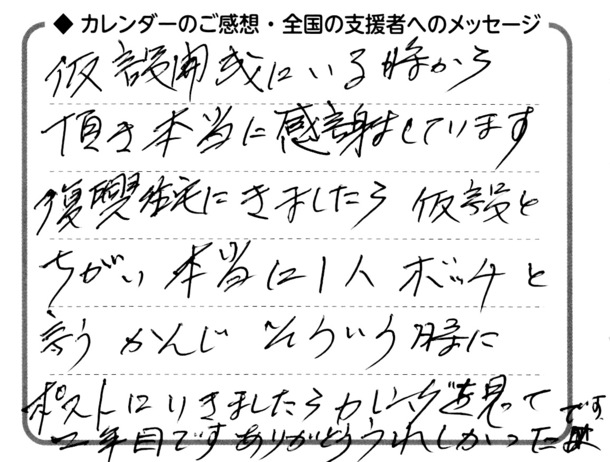 ◆ カレンダーのご感想・全国の支援者へのメッセージ
仮設開成にいる時から
頂き本当に感謝しています
復興住宅にきましたら 仮設と
ちがい 本当に1人 ボッチと
言う かんじ そういう時に
ポストにいきましたらカレンダーを見つて
二年目です ありがとう うれしかったです